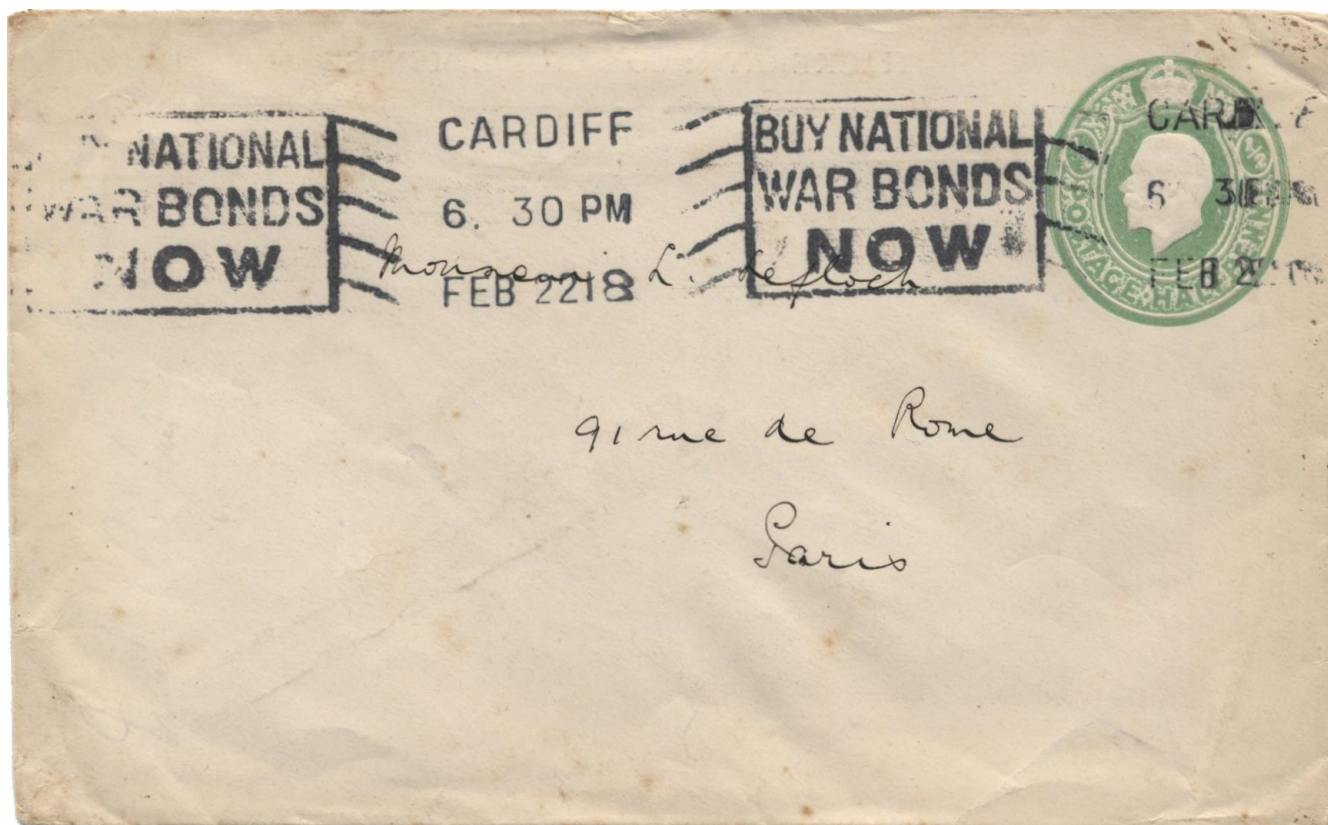 BUY NATIONAL
WAR BONDS
NOW
CARDIFF
6. 30 PM
FEB 22 18
BUY NATIONAL
WAR BONDS
NOW
CARDIFF
6 30 PM
FEB 22
POSTAGE HALFPENNY
Monsieur L. Lefloch
91 rue de Rome
Paris